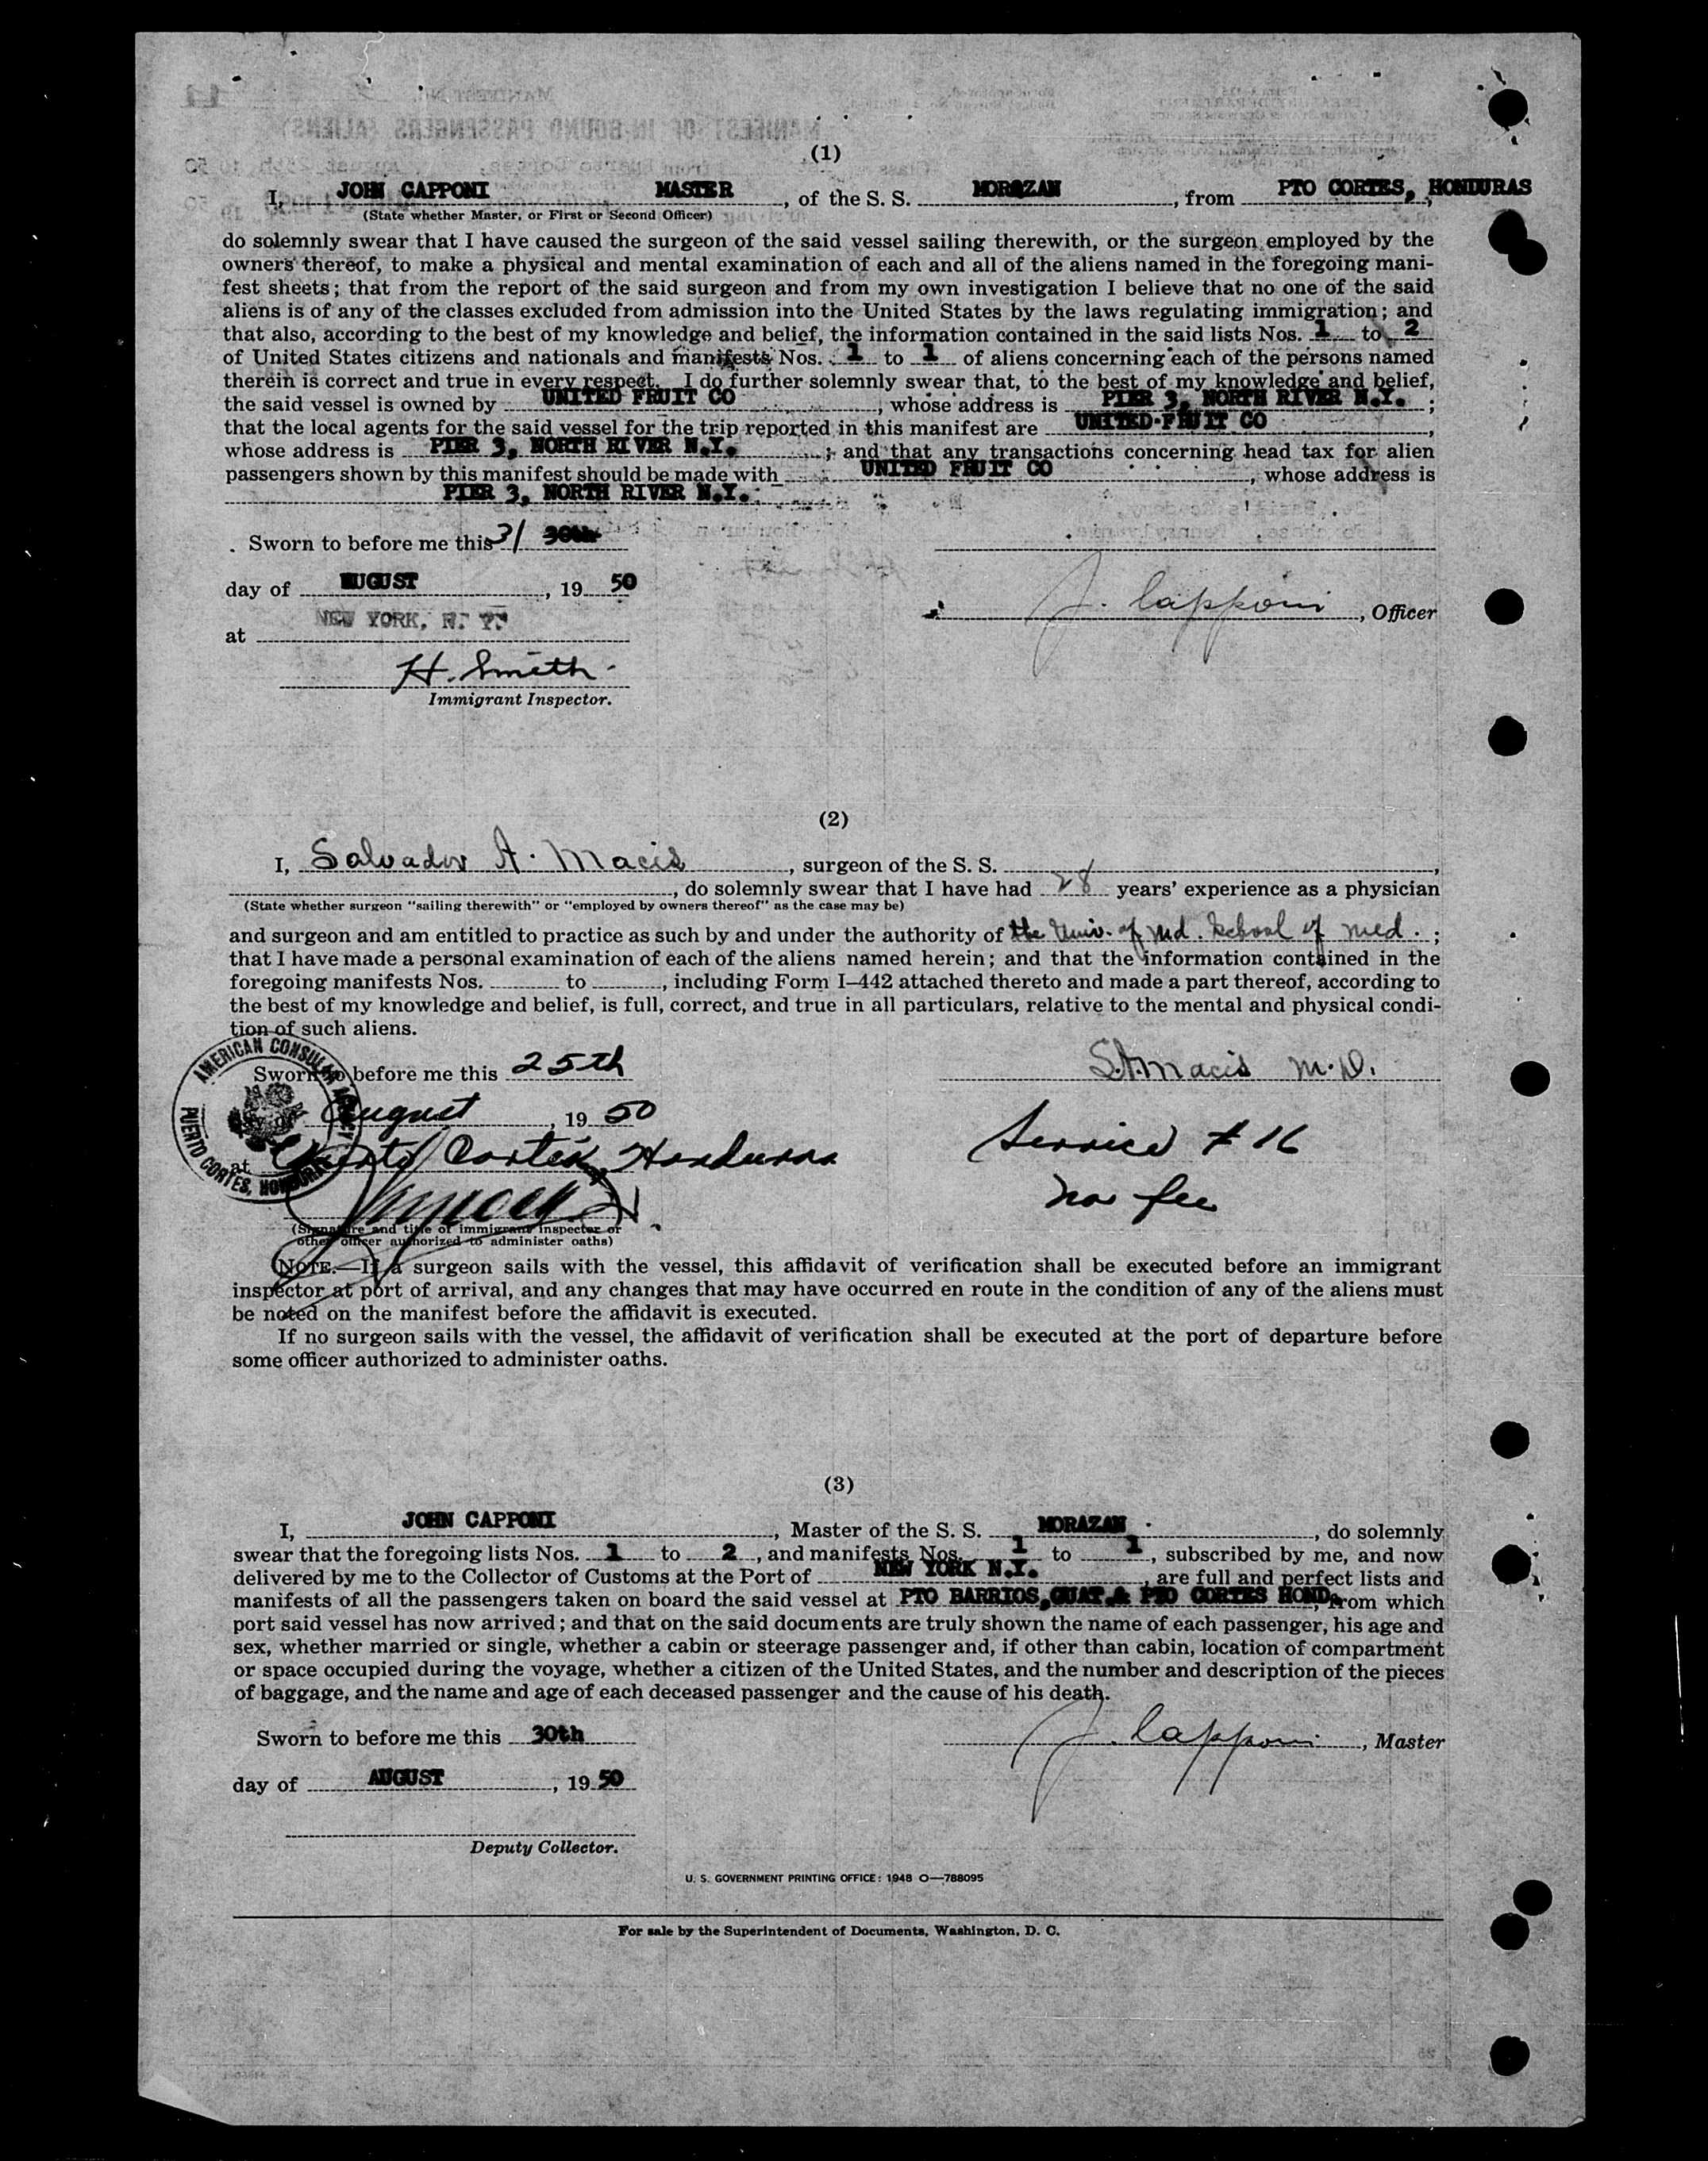 (1)
I, JOHN CAPPONI MASTER, of the S. S. MORAZAN, from PTO CORTES, HONDURAS,
(State whether Master, or First or Second Officer)
do solemnly swear that I have caused the surgeon of the said vessel sailing therewith, or the surgeon employed by the
owners thereof, to make a physical and mental examination of each and all of the aliens named in the foregoing mani-
fest sheets; that from the report of the said surgeon and from my own investigation I believe that no one of the said
aliens is of any of the classes excluded from admission into the United States by the laws regulating immigration; and
that also, according to the best of my knowledge and belief, the information contained in the said lists Nos. 1 to 2
of United States citizens and nationals and manifests Nos. 1 to 1 of aliens concerning each of the persons named
therein is correct and true in every respect. I do further solemnly swear that, to the best of my knowledge and belief,
the said vessel is owned by UNITED FRUIT CO, whose address is PIER 3, NORTH RIVER N.Y. ;
that the local agents for the said vessel for the trip reported in this manifest are UNITED FRUIT CO,
whose address is PIER 3, NORTH RIVER N.Y. ; and that any transactions concerning head tax for alien
passengers shown by this manifest should be made with UNITED FRUIT CO, whose address is
PIER 3, NORTH RIVER N.Y.
Sworn to before me this 31 30th
day of AUGUST, 19 50
NEW YORK, N. Y.
at
J. Capponi, Officer
H. Smith
Immigrant Inspector.
(2)
I, Salvador A. Macis, surgeon of the S. S. ,
, do solemnly swear that I have had 28 years' experience as a physician
(State whether surgeon "sailing therewith" or "employed by owners thereof" as the case may be)
and surgeon and am entitled to practice as such by and under the authority of the Univ. of Md. School of Med. ;
that I have made a personal examination of each of the aliens named herein; and that the information contained in the
foregoing manifests Nos. to , including Form I-442 attached thereto and made a part thereof, according to
the best of my knowledge and belief, is full, correct, and true in all particulars, relative to the mental and physical condi-
tion of such aliens.
AMERICAN CONSULAR AGENCY
PUERTO CORTES, HONDURAS
Sworn to before me this 25th
S.A. Macis M.D.
August, 19 50
at Puerto Cortés, Honduras
Service # 16
No fee
(Signature and title of immigrant inspector or
other officer authorized to administer oaths)
NOTE.—If a surgeon sails with the vessel, this affidavit of verification shall be executed before an immigrant
inspector at port of arrival, and any changes that may have occurred en route in the condition of any of the aliens must
be noted on the manifest before the affidavit is executed.
If no surgeon sails with the vessel, the affidavit of verification shall be executed at the port of departure before
some officer authorized to administer oaths.
(3)
I, JOHN CAPPONI, Master of the S. S. MORAZAN, do solemnly
swear that the foregoing lists Nos. 1 to 2, and manifests Nos. 1 to 1, subscribed by me, and now
delivered by me to the Collector of Customs at the Port of NEW YORK N.Y., are full and perfect lists and
manifests of all the passengers taken on board the said vessel at PTO BARRIOS, GUAT. & PTO CORTES HOND., from which
port said vessel has now arrived; and that on the said documents are truly shown the name of each passenger, his age and
sex, whether married or single, whether a cabin or steerage passenger and, if other than cabin, location of compartment
or space occupied during the voyage, whether a citizen of the United States, and the number and description of the pieces
of baggage, and the name and age of each deceased passenger and the cause of his death.
Sworn to before me this 30th
J. Capponi, Master
day of AUGUST, 19 50
Deputy Collector.
U. S. GOVERNMENT PRINTING OFFICE: 1948 O—788095
For sale by the Superintendent of Documents, Washington, D. C.